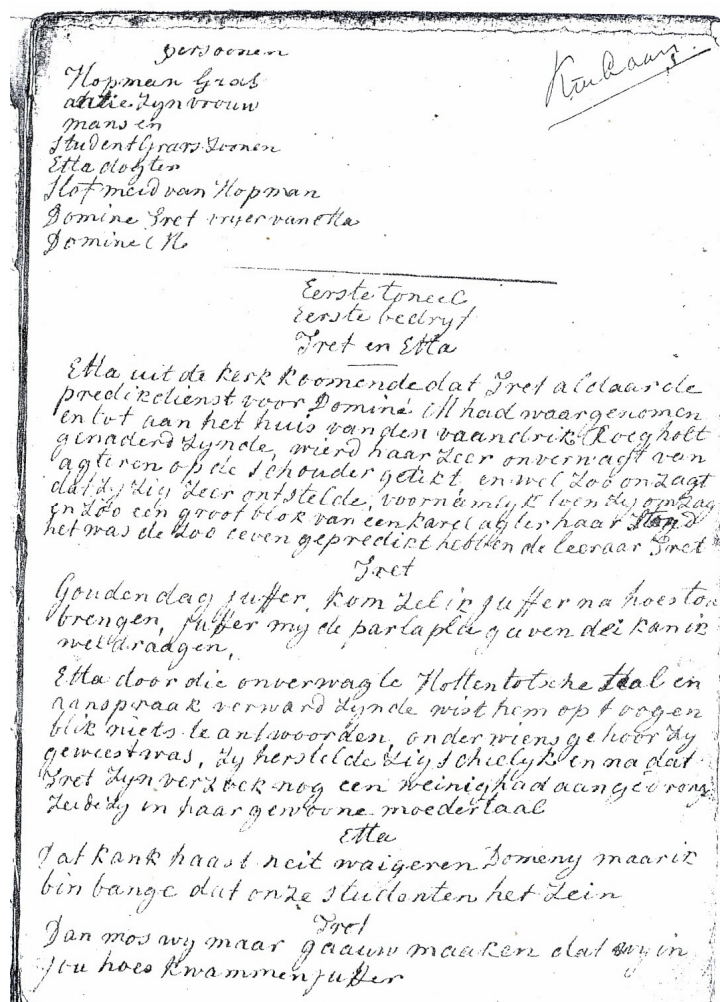 persoonen
Hopman Gras
antie Zyn vrouw
mans en
student Grars Zoonen
Etta dogter
Slof meid van Hopman
Domine Tret vryer van Etta
Domine C H
Eerste toneel
Eerste bedryf
Tret en Etta
Etta uit de kerk koomende dat Tret aldaar de
predikdienst voor Dominé had waargenomen
en tot aan het huis van den vaandrik Roegholt
genaderd Zynde, wierd haar Zeer onverwagt van
agteren op de schouder getikt, en wel Zoo onzagt
dat Zy Zig Zeer ontstelde, voornamlyk toen Zy omzag
en Zoo een groot blok van een karel agter haar stond
het was de Zoo eeven gepredikt hebben de leeraar Tret
Tret
Gouden dag juffer, kom Zel ik juffer na hoes tou
brengen, juffer my de parlaplu geven dei kan ik
wel draagen,
Etta door die onverwagte Hottentotsche taal en
aanspraak verward Zynde wist hem op t oogen
blik niets te antwoorden, onder wiens gehoor Zy
geweest was, Zy herstelde Zig schielyk en na dat
Tret Zyn verzoek nog een weinig had aangedrong
Zeide Zy in haar gewoone moedertaal
Etta
Dat kank haast neit waigeren Domeny maar ik
bin bange dat onze studenten het Zein
Tret
Dan mos wy maar gaauw maaken dat wy in
jou hoes kwammen juffer